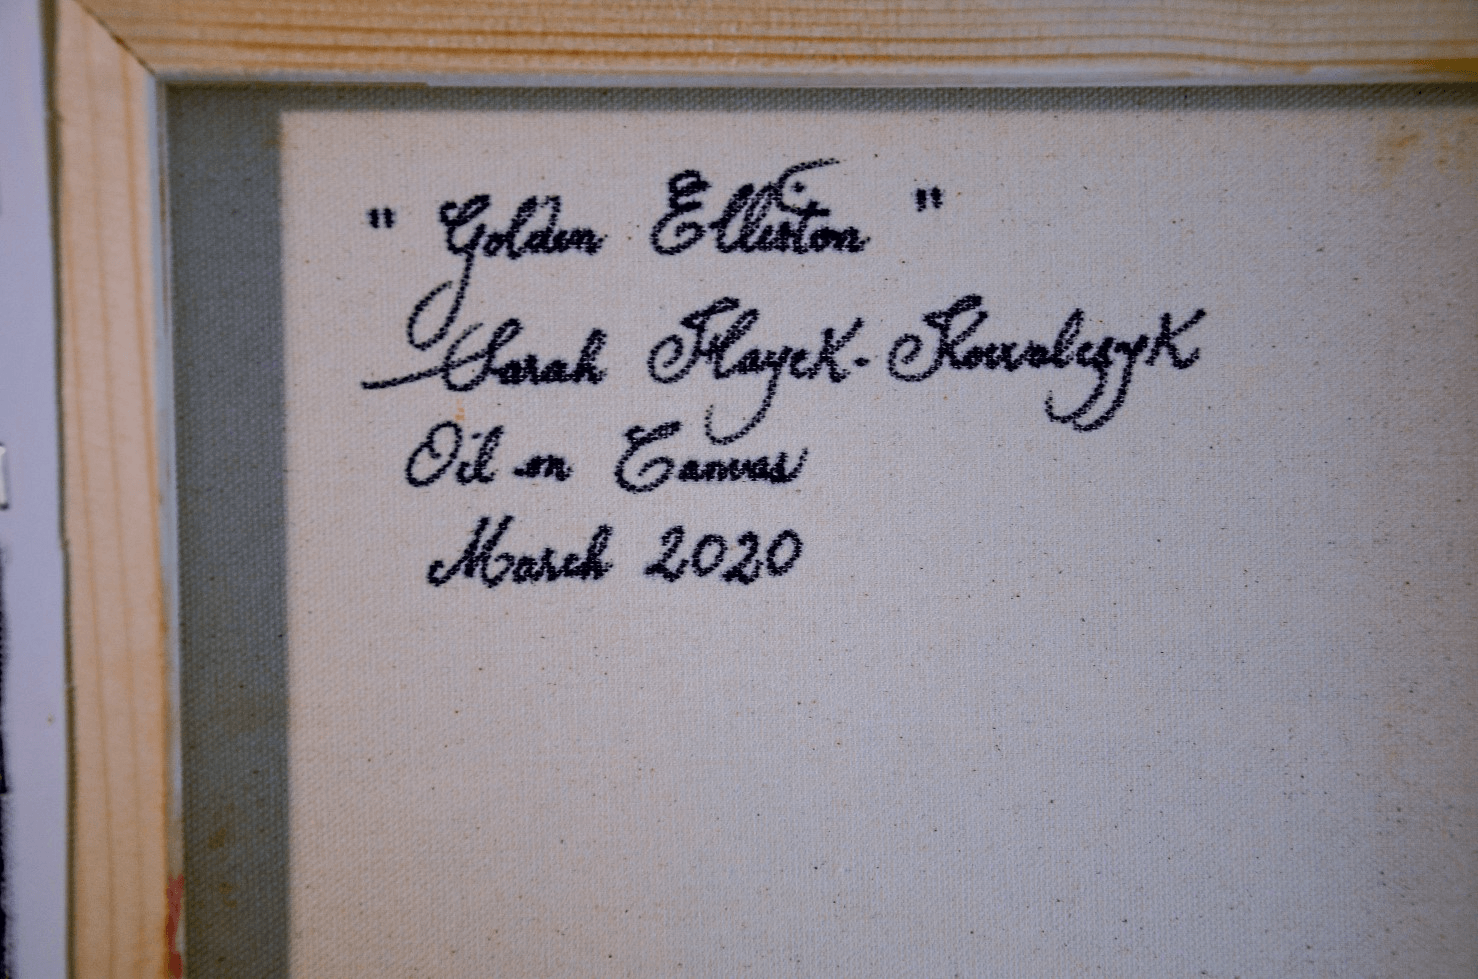 " Golden Elliston "
Sarah Hayek-Kowalczyk
Oil on Canvas
March 2020